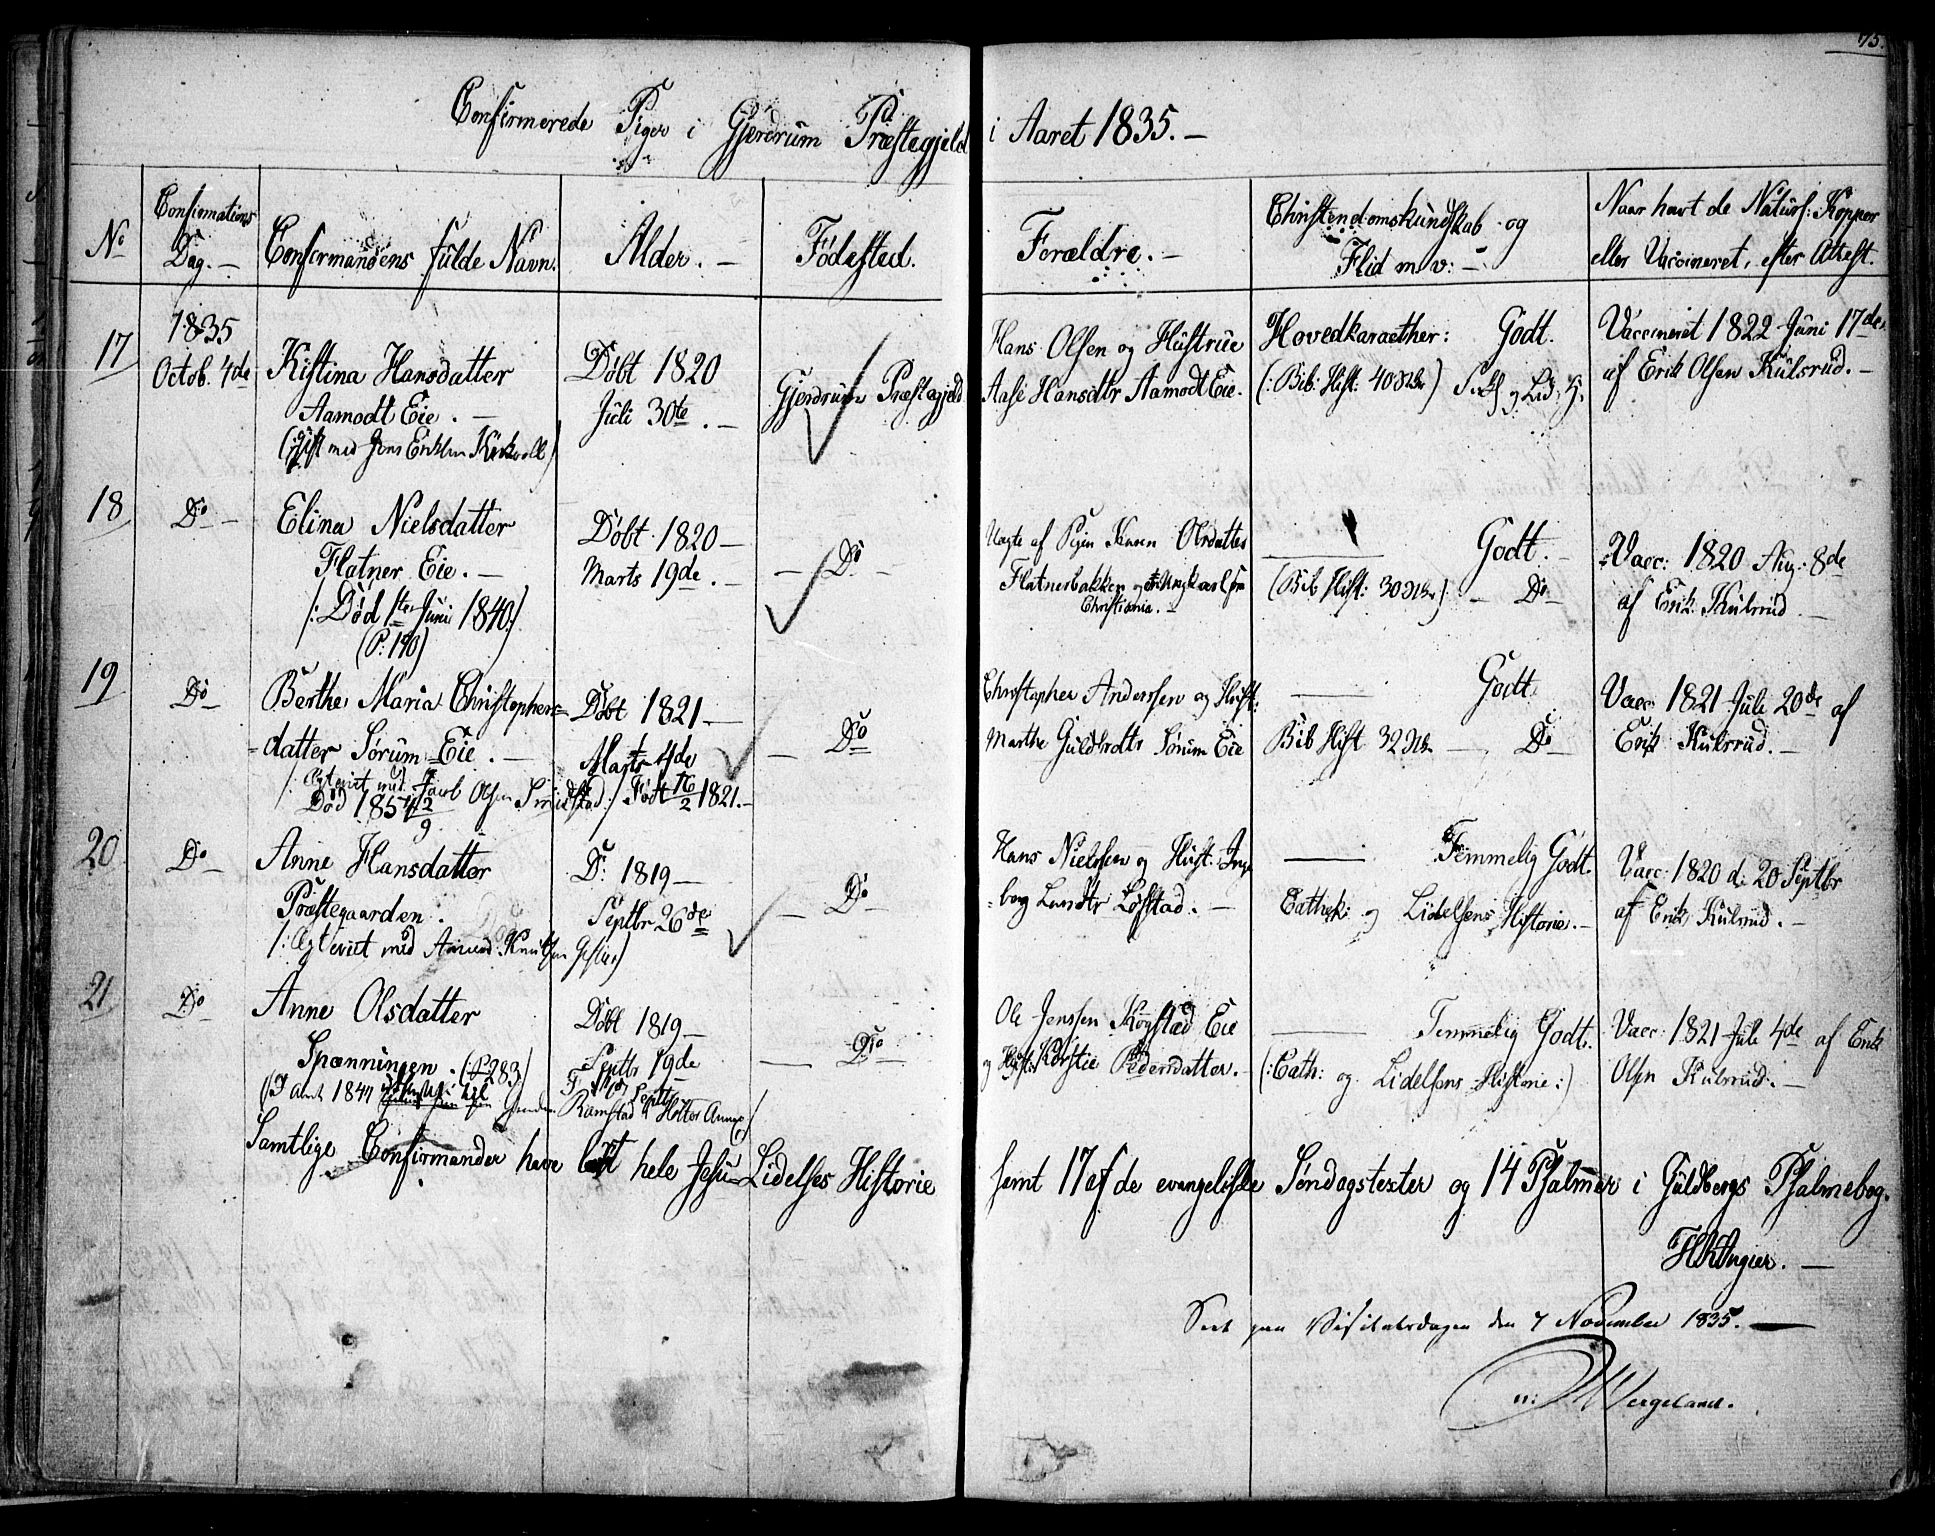 75.
Confirmerede Piger i Gjerdrum Præstegjeld i Aaret 1835. —
No
Confirmations Dag. —
Confirmandens fulde Navn.
Alder. —
Fødested.
Forældre. —
Christendomskundskab og Flid m v: —
Naar havt de Naturl: Kopper eller Vaccineret, efter Attest.
17
1835
Octob. 4de
Kistina Hansdatter
Aamodt Eie. —
(gift med Jens Eriksen Kirkvold)
Døbt 1820
Juli 30te. —
Gjerdrum Præstegjeld
Hans Olsen og Hustrue
Aase Hansdtr Aamodt Eie.
Hovedkaracther: Godt.
(: Bib: Hist: 40
Vaccineret 1822 Juni 17de
af Erik Olsen Kulsrud. —
18
Do —
Elina Nielsdatter
Flatner Eie. —
/: Død 1ste Juni 1840 :/
(P: 140)
Døbt 1820 —
Marts 19de. —
— Do —
Uægte af Pigen Karen Olsdatter
Flatnerbakken og en Ungkarl fra
Christiania. —
Godt. —
(Bib Hist: 30 — Do —
Vacc: 1820 Aug: 8de
af Erik Kulsrud —
19
Do —
Berthe Maria Christophers=
datter Sørum=Eie. —
/: Ægteviet med Jacob Olsen Smidstad :/ Født 16/2 1821. —
Død 1854 12/9
Døbt 1821 —
Marts 4de
— Do
Christopher Anderssen og Hust:
Marthe Guldbrdtr Sørum Eie
— Godt
Bib Hist 32 — Do —
Vacc: 1821 Juli 20de af
Erik Kulsrud. —
20
Do —
Anne Hansdatter
Præstegaarden.
/: Ægteviet med Amund Knutsen
D: 1819 —
Septbr 26de
— Do —
Hans Nielssen og Hust: Inge
=borg Larsdtr Løstad. —
— Temmelig Godt.
Cathek: og Lidelsens Historie. —
Vacc: 1820 d: 20 Septbr
af Erik Kulsrud. —
21
Do —
Anne Olsdatter
Spænningen. (P 283)
Døbt 1819 —
Septbr 19de
— Do —
Ole Jenssen Kogstad Eie
og Hustr Kirstie Pedersdatter. —
— Temmelig Godt.
(: Cath: og Lidelsens Historie :)
Vacc: 1821 Juli 4de af Erik
Olsen Kulsrud. —
Samtlige Confirmander have læst hele Jesu Lidelses Historie samt 17 af de evangeliske Søndagstexter og 14 Psalmer i Guldbergs Psalmebog.
HKAngier. —
Seet paa Visitatsdagen den 7 November 1835. —
n: Wergeland.